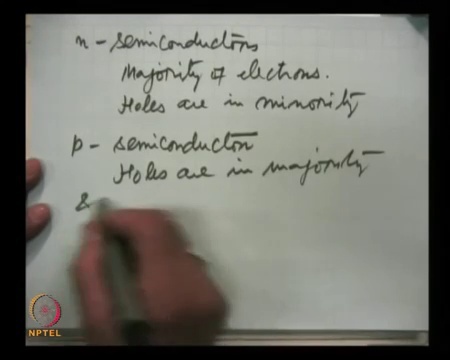 n - semiconductors
Majority of electrons.
Holes are in minority
p - semiconductor
Holes are in majority
&
NPTEL